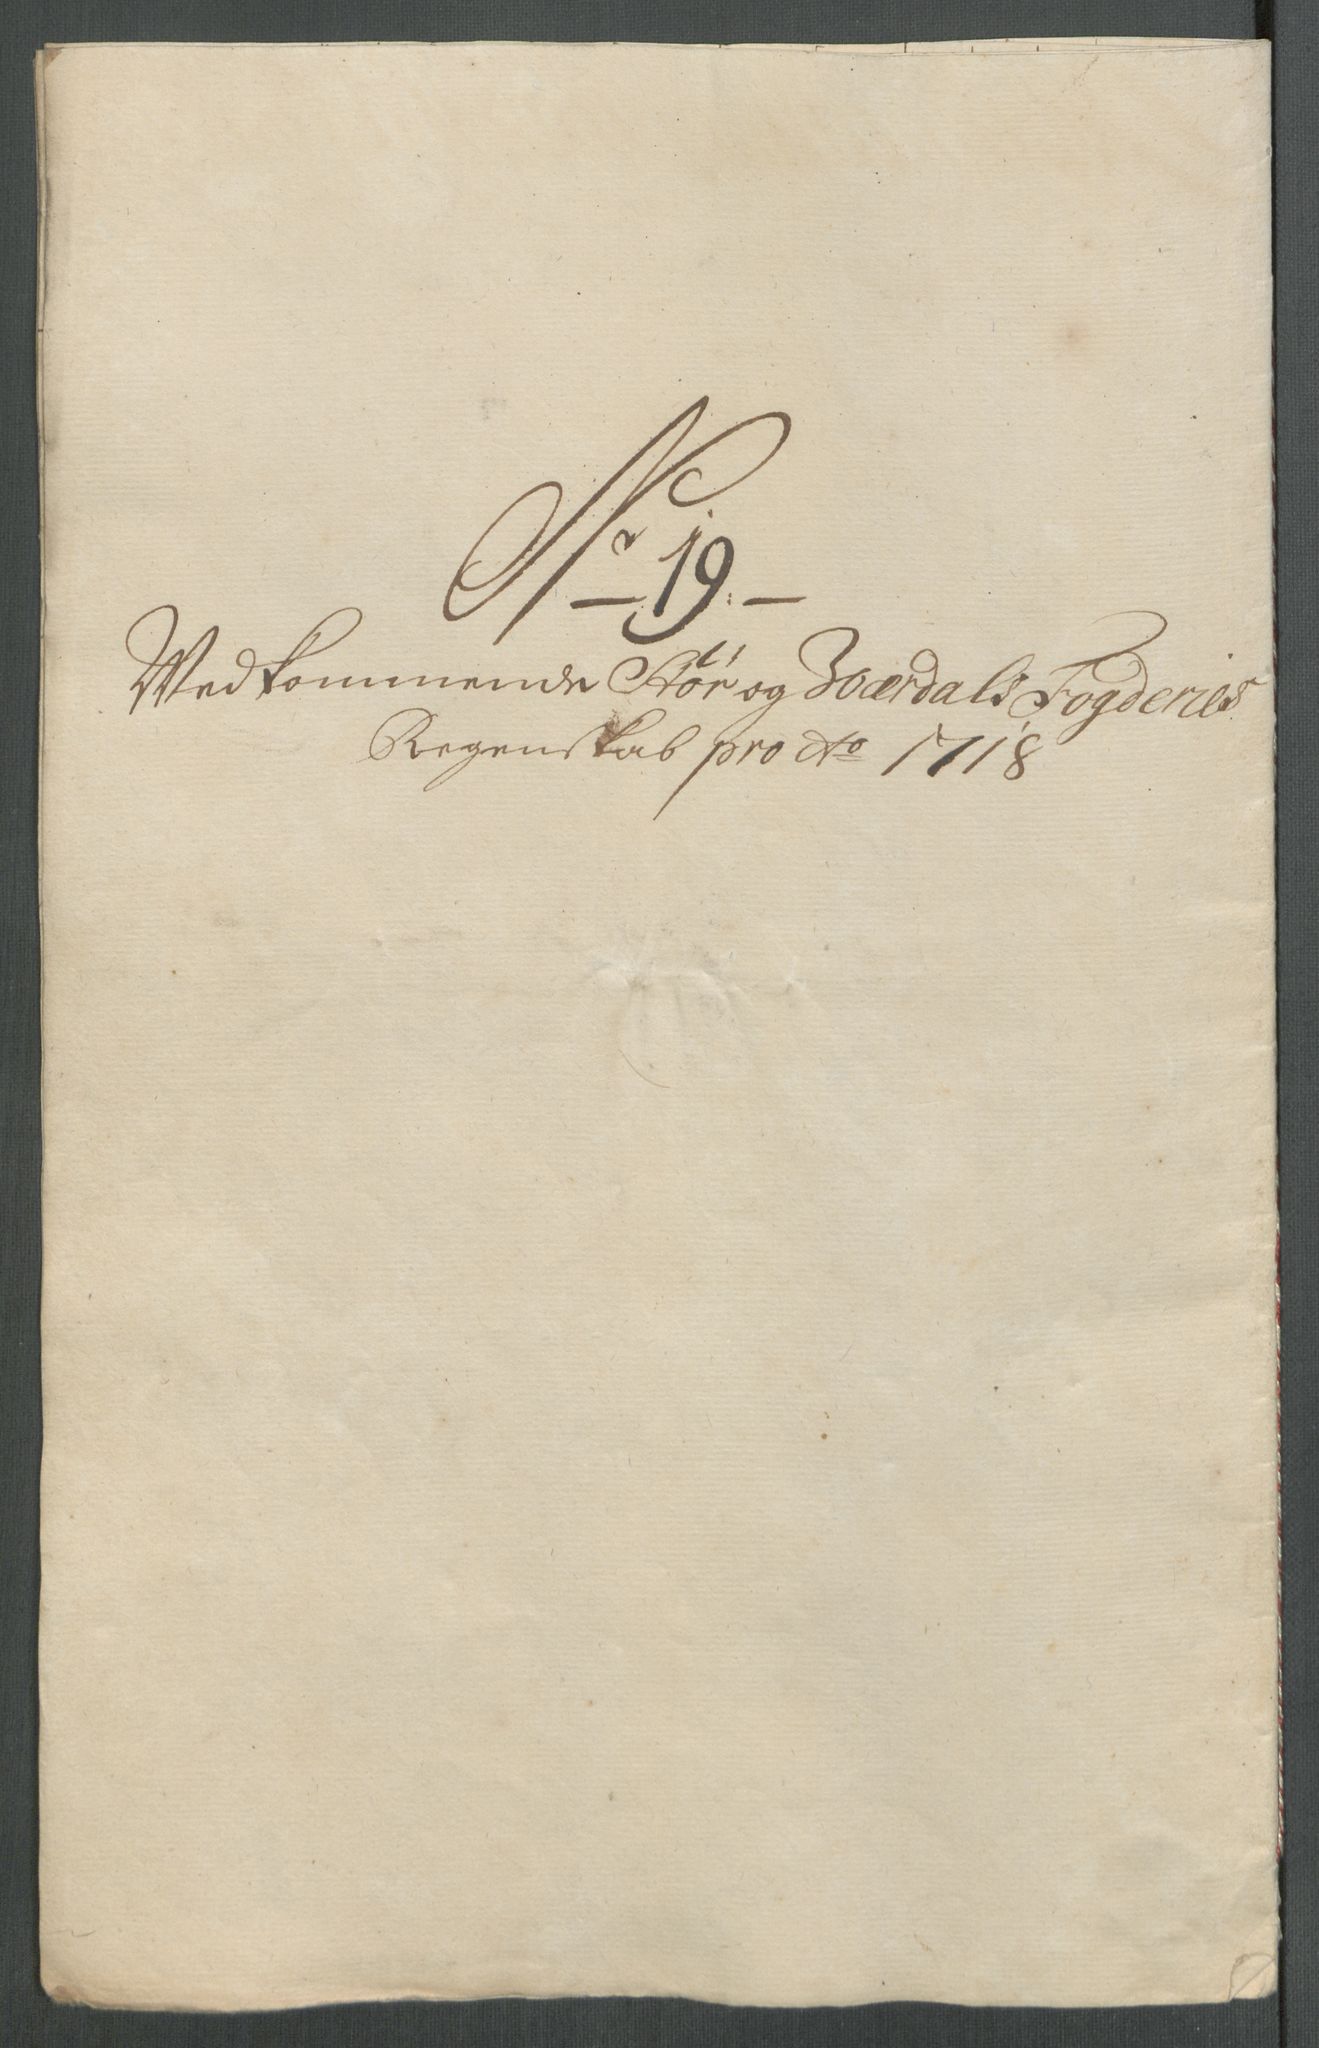 No 19.
Vedkommende Stör og Værdals Fogderies
Regenskab pro Ao 1718